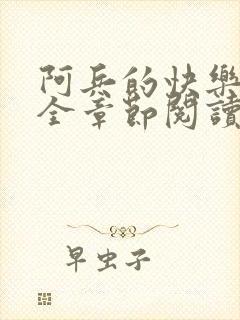 阿兵的快樂
全章節閱讀
早虫子